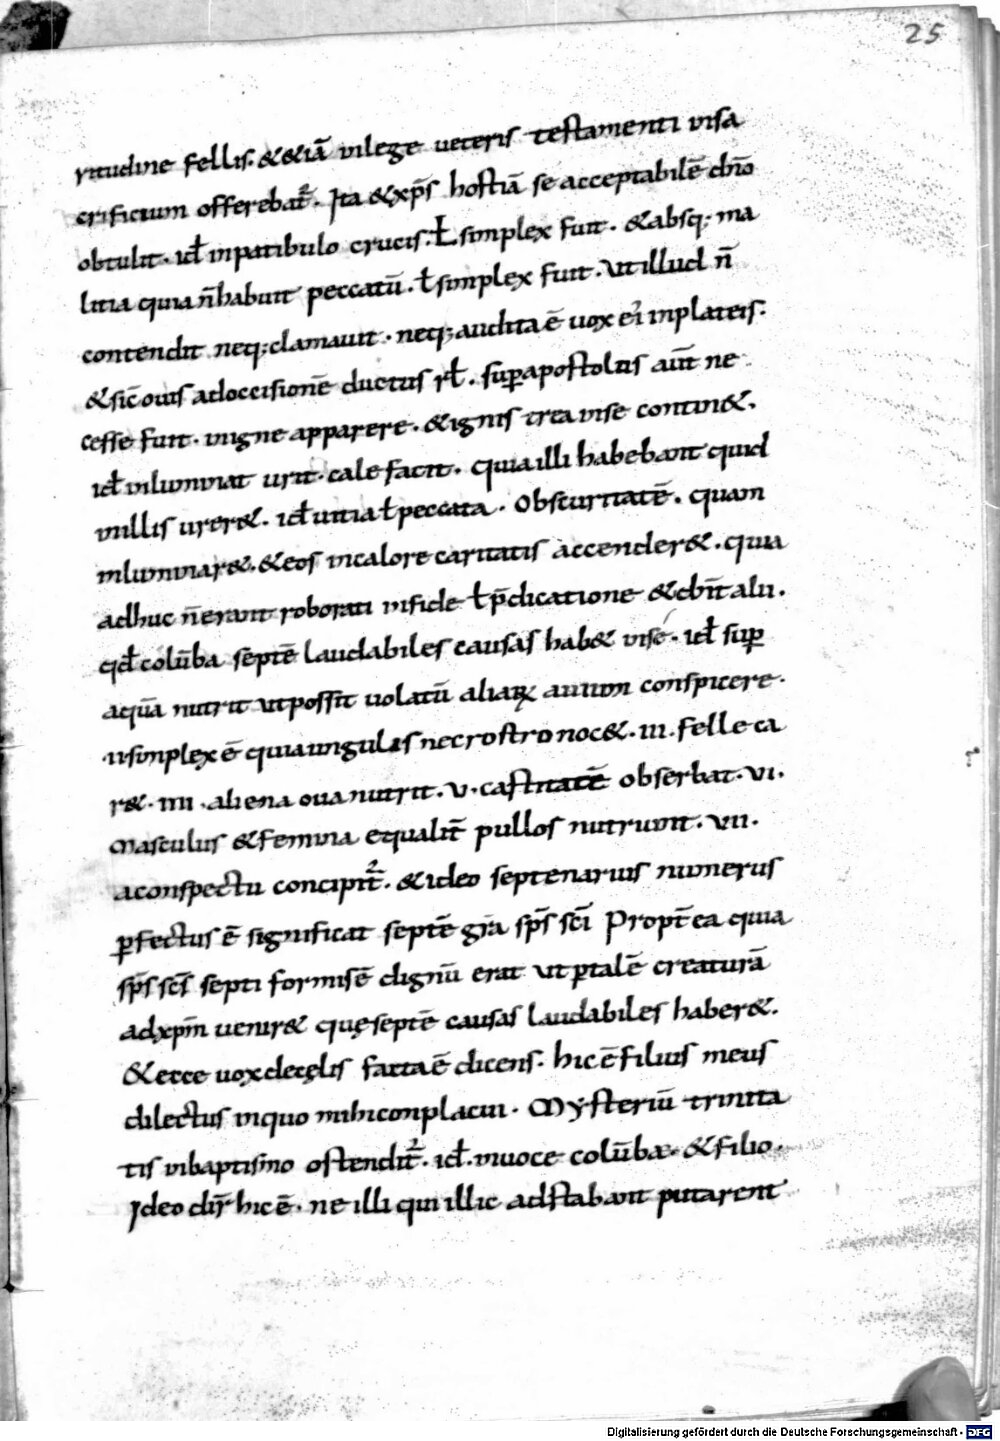 25
ritudine fellis. & &iā inlege ueteris testamenti insa
crificium offerebat᷑. Ita & xp̄s hostiā se acceptabilē dn̄o
obtulit. id ̄ inpatibulo crucis. ł simplex fuit. & absq; ma
litia quia n̄ habuit peccatū. ł simplex fuit. Vt illud n̄
contendit neq; clamauit. neq; audita ē uox ei᷑ inplateis.
& sic̄ ouis adoccisionē ductus rł. suꝑapostolus aūt ne
cesse fuit. inigne apparere. & ignis trea inse contin&.
id ̄ inluminat urit. calefacit. quia illi habebant quid
inillis urer&. id ̄ uitia ł peccata. Obscuritatē. quam
inluminar&. & eos incalore caritatis accender&. quia
adhuc n̄ erant roborati infide ł p̄dicatione & dn̄t alii.
qd ̄ colūba septē laudabiles causas hab& inse. id ̄ suꝑ
aquā nutrit ut possit uolatū aliaꝝ auium conspicere.
.ii simplex ē quia ungulis nec rostro noc&. iii. Felle ca
r&. iiii. aliena oua nutrit. v. castitatē obserbat. vi.
Masculus & femina equalit̄ pullos nutriunt. vii.
aconspectu concipit᷑. & ideo septenarius numerus
ꝑfectus ē significat septē gr̄a sp̄s sc̄i Propt̄ea quia
sp̄s sc̄s septi formis ē dignū erat ut ꝑtalē creaturā
ad xp̄m uenir& quę septē causas laudabiles haber&.
& ecce uox decęlis facta ē dicens. hic ē filius meus
dilectus inquo mihi conplacui. Mysteriū trinita
tis inbaptismo ostendit᷑. id ̄. inuoce colūbæ & filio.
Ideo dir̄ hic ē. ne illi qui illic adstabant putarent
Digitalisierung gefördert durch die Deutsche Forschungsgemeinschaft - DFG